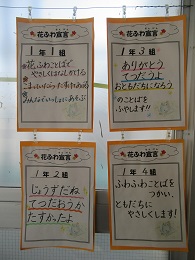 花ふわ宣言
1年1組
花ふわことばで
やさしくはなしかける
花ふわ宣言
1年3組
ありがとう
てつだうよ
おともだちになろう
のことばを
ふやします!!
花ふわ宣言
1年2組
じょうずだね
てつだおうか
たすかったよ
花ふわ宣言
1年4組
ふわふわことばを
つかい、
ともだちに
やさしくします!